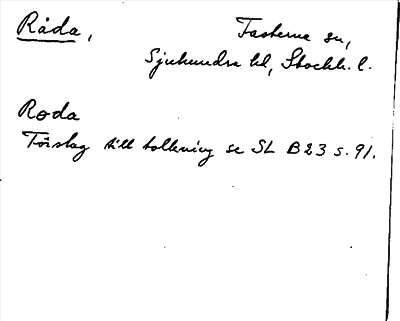 Råda, Fasterna sn,
Sjuhundra hd, Stockh. l.
Roda
Förslag till tolkning se SL B23 s. 91.